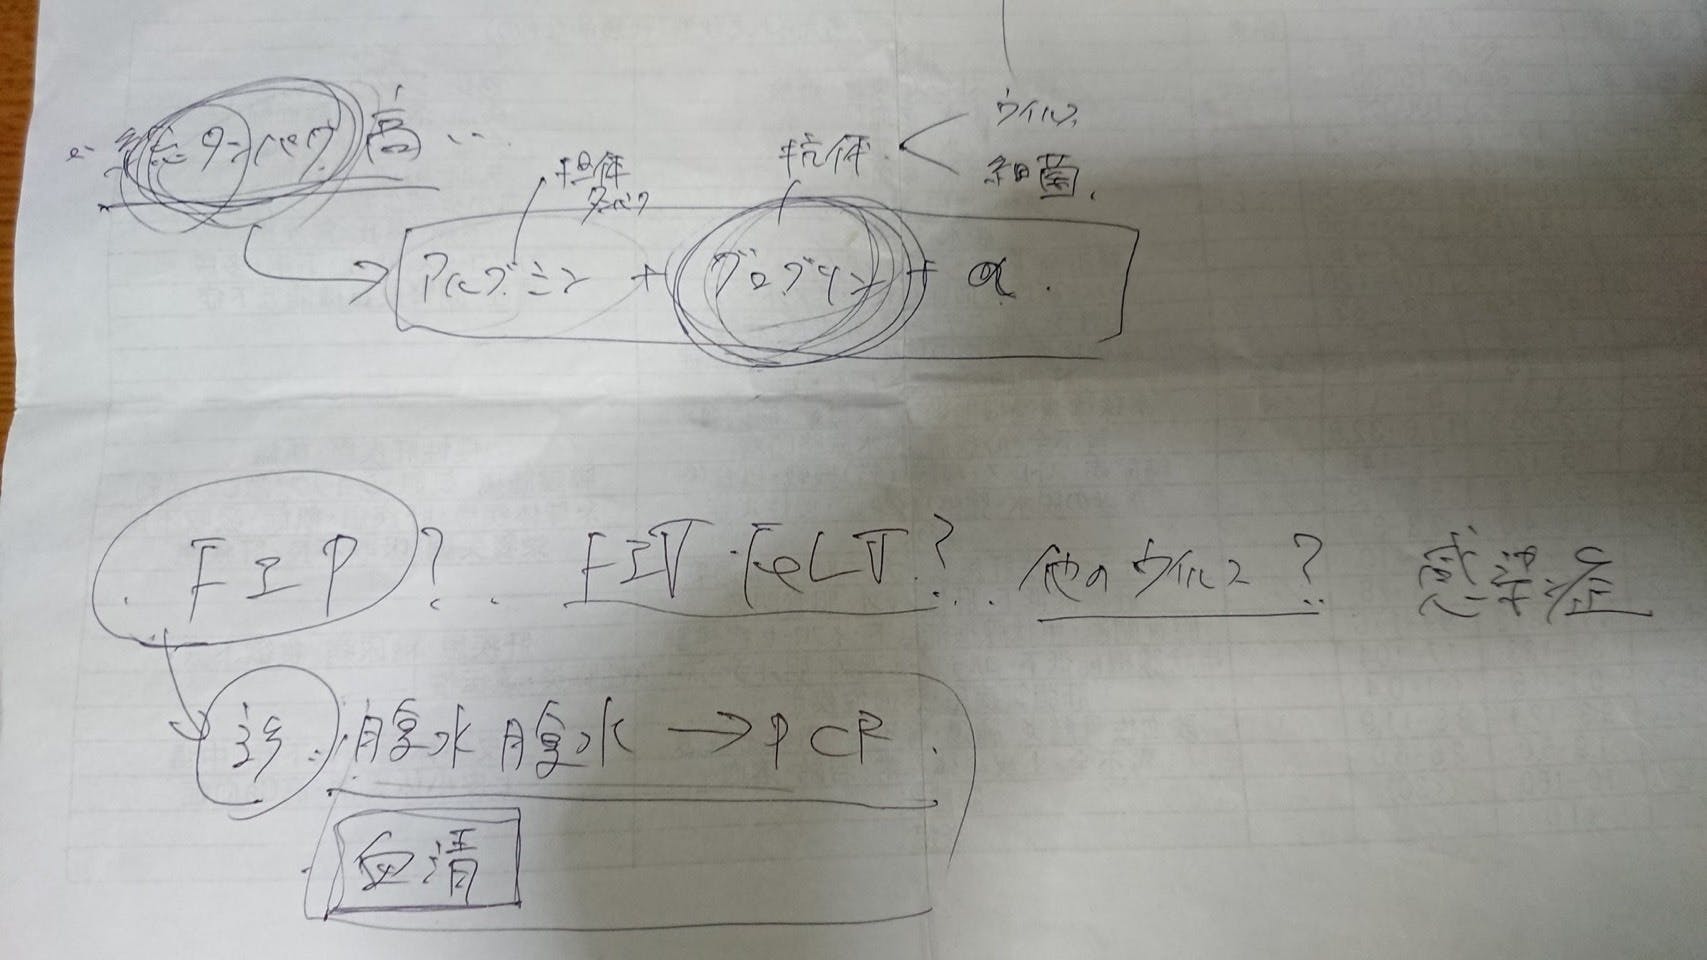 総タンパク 高
担体
タンパク
抗体
ウイルス
細菌
アルブミン + グロブリン + α
FIP? FIV・FeLV? 他のウイルス? 感染症
腹水 → PCR
血清